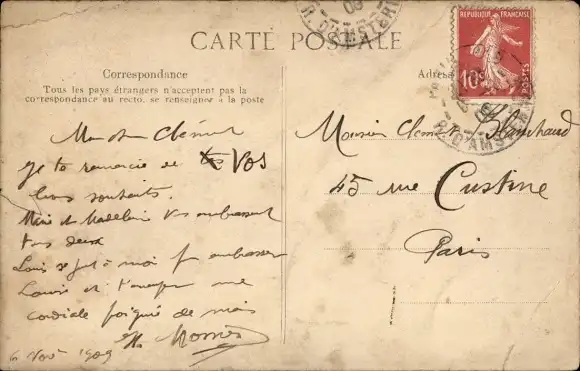 CARTE POSTALE
Correspondance
Tous les pays étrangers n'acceptent pas la
correspondance au recto, se renseigner à la poste
Mon cher Clément
Je te remercie de VOS
bons souhaits.
et Madeleine vous embrassent
tous deux
Louis se joint à moi pr embrasser
Louise et t'envoyer une
cordiale poignée de main
6 Nov 1909
Adres
REPUBLIQUE FRANÇAISE
10c
POSTES
R. D'AMSTER
09
Monsieur Clement Blanchard
45 rue Custine
Paris